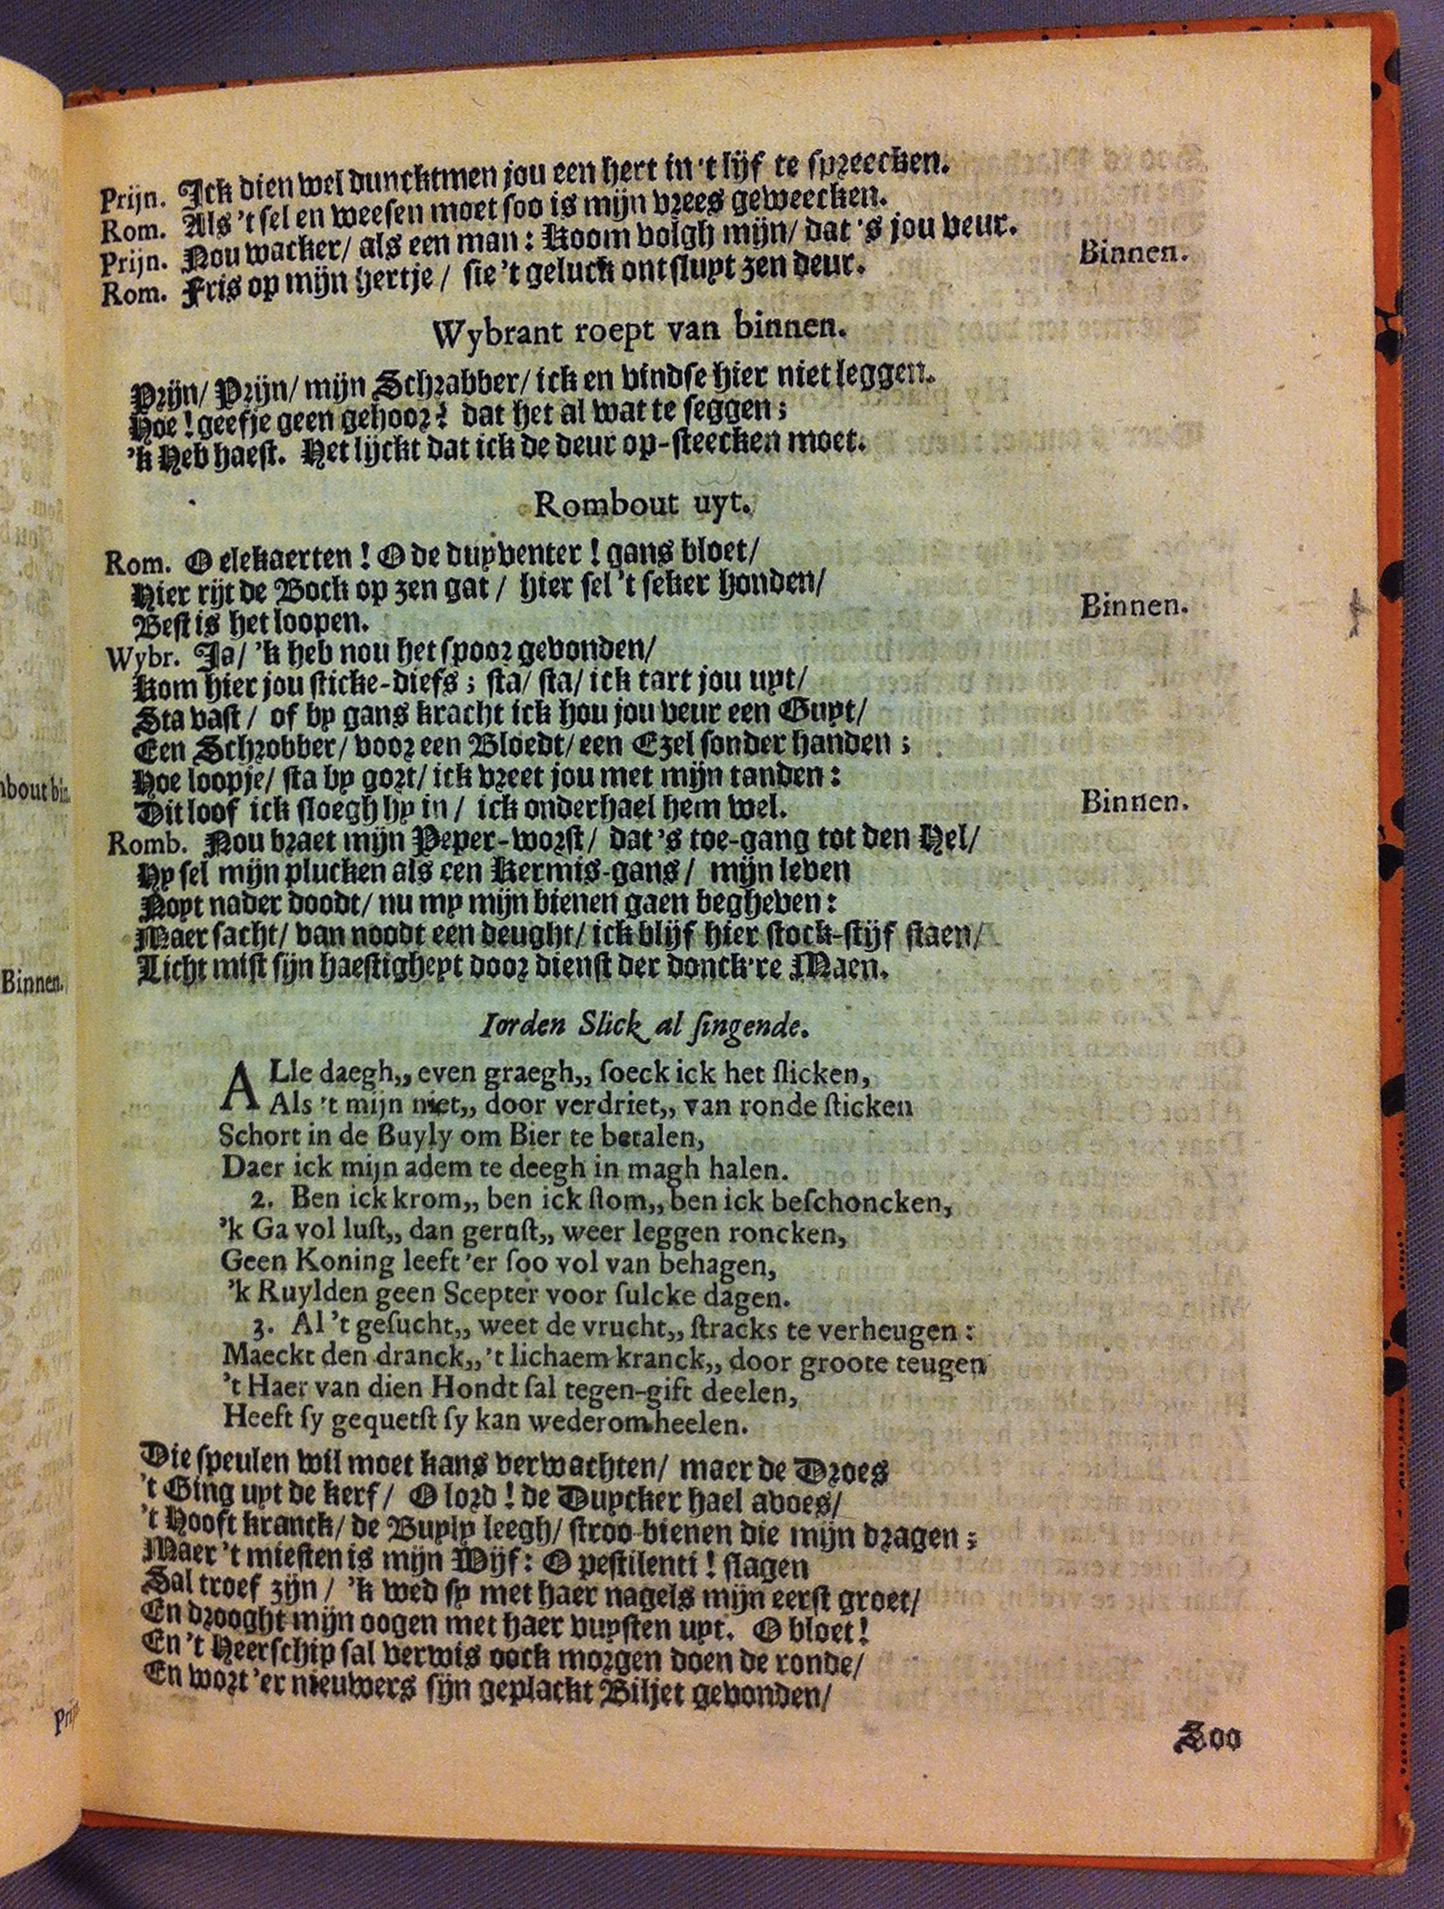 Prijn. Ick dien wel duncktmen jou een hert in 't lijf te spreecken.
Rom. Als 't sel en weesen moet soo is mijn vrees geweecken.
Prijn. Nou wacker/ als een man: Koom volgh mijn/ dat 's jou veur.
Rom. Fris op mijn hertje/ sie 't geluck ontslupt zen deur. Binnen.
Wybrant roept van binnen.
Prijn/ Prijn/ mijn Schrabber/ ick en vindse hier niet leggen.
Hoe! geefje geen gehoor? dat het al wat te seggen;
'k Heb haest. Het lijckt dat ick de deur op-steecken moet.
Rombout uyt.
Rom. O elekaerten! O de duyventer! gans bloet/
Hier rijt de Bock op zen gat/ hier sel 't seker honden/
Best is het loopen. Binnen.
Wybr. Ja/ 'k heb nou het spoor gevonden/
Kom hier jou sticke-diefs; sta/ sta/ ick tart jou uyt/
Sta vast/ of by gans kracht ick hou jou veur een Guyt/
Een Schrobber/ voor een Bloedt/ een Ezel sonder handen;
Hoe loopje/ sta by gort/ ick vreet jou met mijn tanden:
Dit loof ick sloegh hy in/ ick onderhael hem wel. Binnen.
Romb. Nou braet mijn Peper-worst/ dat 's toe-gang tot den Hel/
Hy sel mijn plucken als een Kermis-gans/ mijn leven
Noyt nader doodt/ nu my mijn bienen gaen begheven:
Maer sacht/ van noodt een deught/ ick blijf hier stock-stijf staen/
Licht mist sijn haestigheyt door dienst der donck're Maen.
Iorden Slick al singende.
ALle daegh,, even graegh,, soeck ick het slicken,
Als 't mijn niet,, door verdriet,, van ronde sticken
Schort in de Buyly om Bier te betalen,
Daer ick mijn adem te deegh in magh halen.
2. Ben ick krom,, ben ick stom,, ben ick beschoncken,
'k Ga vol lust,, dan gerust,, weer leggen roncken,
Geen Koning leeft 'er soo vol van behagen,
'k Ruylden geen Scepter voor sulcke dagen.
3. Al 't gesucht,, weet de vrucht,, stracks te verheugen:
Maeckt den dranck,, 't lichaem kranck,, door groote teugen
't Haer van dien Hondt sal tegen-gift deelen,
Heeft sy gequetst sy kan wederom heelen.
Die speulen wil moet kans verwachten/ maer de Droes
't Ging uyt de kerf/ O lord! de Duycker hael avoes/
't Hooft kranck/ de Buyly leegh/ stroo-bienen die mijn dragen;
Maer 't miesten is mijn Wijf: O pestilenti! slagen
Sal troef zijn/ 'k wed sy met haer nagels mijn eerst groet/
En drooght mijn oogen met haer vuysten uyt. O bloet!
En 't Heerschip sal verwis oock morgen doen de ronde/
En wort 'er nieuwers sijn geplackt Biljet gevonden/
Soo